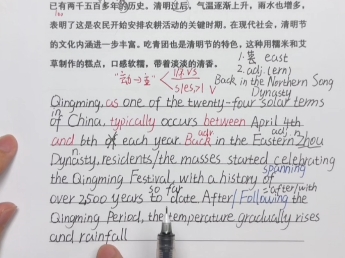 已有两千五百多年的历史。清明过后，气温逐渐上升，雨水也增多，
表明了这是农民开始安排农耕活动的关键时期。在现代社会，清明节
的文化内涵进一步丰富。吃青团也是清明节的特色，这种用糯米和艾
草制作的糕点，口感软糯，带着淡淡的清香。
1. east
"动→主" 2. adj.(ern)
s/es>1 V Back in the Northern Song
Dynasty
Qingming, as one of the twenty-four solar terms
in
of China, typically occurs between April 4th
adv. adj. n.
and 6th of each year. Back in the Eastern Zhou
n.
Dynasty, residents/the masses started celebrating
spanning
the Qingming Festival, with a history of
so far =after/with
over 2,500 years to date. After/Following the
Qingming Period, the temperature gradually rises
and rainfall